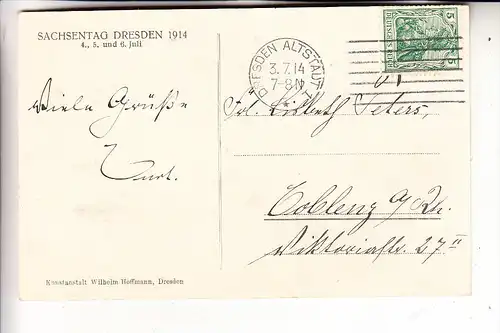 SACHSENTAG DRESDEN 1914
4., 5. und 6. Juli
DRESDEN ALTSTADT
3.7.14
7-8N
5
DEUTSCHES REICH
5
Viele Grüße
Kurt.
Frl. Lisbeth Peters,
Coblenz a/Rh.
Viktoriastr. 27 II
Kunstanstalt Wilhelm Hoffmann, Dresden